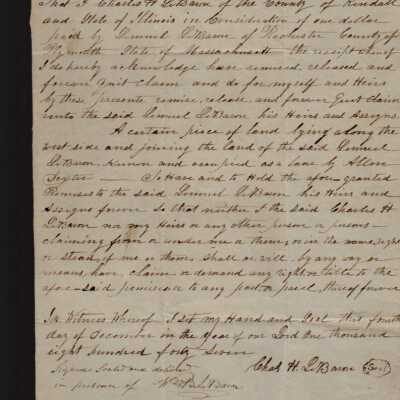 That I Charles H LeBaron of the County of Kendall
and State of Illinois in Consideration of one dollar
paid by Lemuel LeBaron of Rochester County of
Plymouth State of Massachusetts the receipt thereof
I do hereby acknowledge have remised released and
forever Quit Claim and do for myself and Heirs
by these Presents remise, release, and forever Quit Claim
unto the said Lemuel LeBaron his Heirs and Assigns
A certain piece of land lying along the
west side and joining the land of the said Lemuel
LeBaron Known and occupied as a lane by Allen
Dexter — To Have and to Hold the afore granted
Remises to the said Lemuel LeBaron his Heirs and
Assigns forever So that neither I the said Charles H
LeBaron nor my Heirs or any other person or persons
claiming from or under me or them, or in the name, right
or stead of me or them, shall or will by any way or
means, have, claim or demand any right or title to the
afore-said premises or to any part or parcel thereof forever
In Witness Whereof I set my Hand and Seal this fourth
day of December in the Year of our Lord One thousand
eight hundred forty Seven
Chas H. LeBaron Seal
Signed Sealed and delivered
in presence of Wm LeBaron